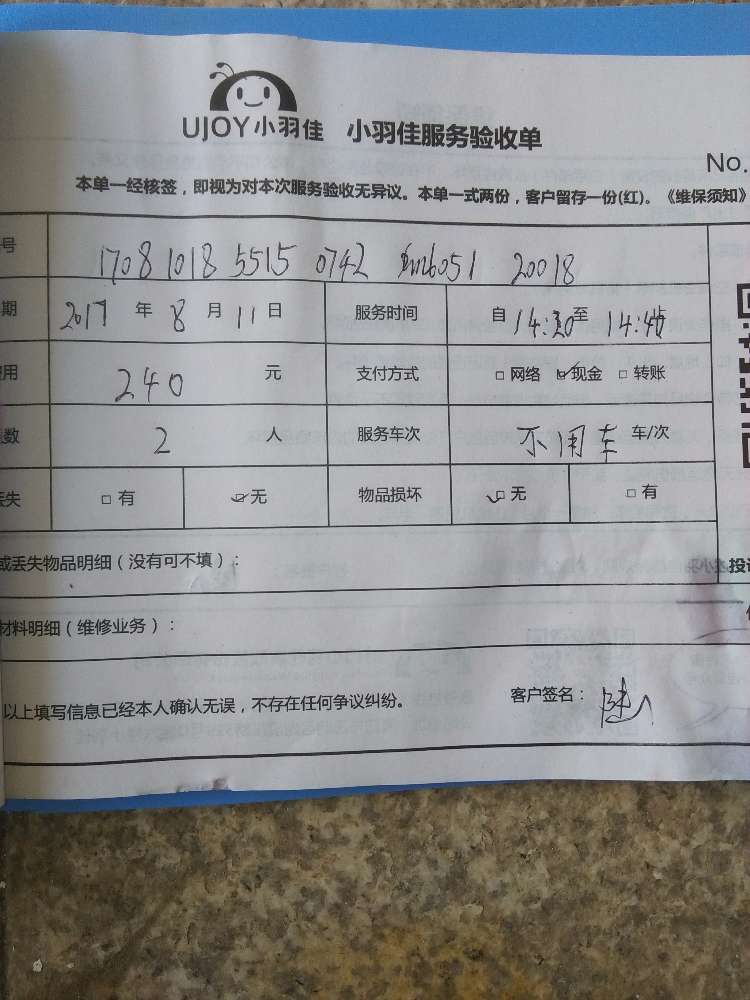 UJOY小羽佳 小羽佳服务验收单
No.
本单一经核签，即视为对本次服务验收无异议。本单一式两份，客户留存一份(红)。《维保须知》
号 1708 1018 5515 0742 6051 20018
期 2017 年 8 月 11 日 服务时间 自 14: 至 14:40
用 240 元 支付方式 □ 网络 ☑ 现金 □ 转账
数 2 人 服务车次 不用车 车/次
丢失 □ 有 ☑ 无 物品损坏 ☑ 无 □ 有
或丢失物品明细（没有可不填）：
投诉
材料明细（维修业务）：
以上填写信息已经本人确认无误，不存在任何争议纠纷。 客户签名：